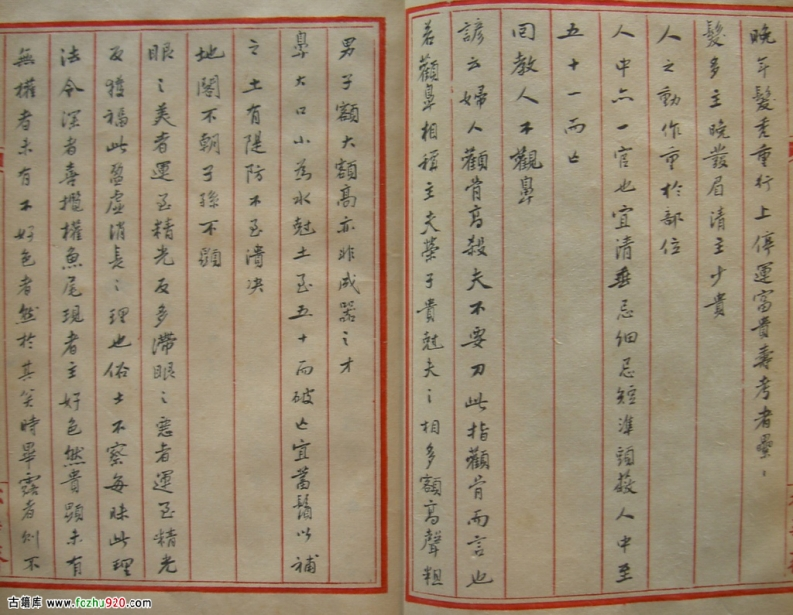 晚年髮禿重行上停運富貴壽考者壘々
髮多主晚發眉清主少貴
人之動作重於部位
人中亦一官也宜清垂忌細忌短準頭發人中至
五十一而亡
回教人不觀鼻
諺云婦人顴骨高殺夫不要刀此指顴骨而言也
若顴鼻相稱主夫榮子貴尅夫之相多額高聲粗
男子額大額高亦非成器之才
鼻大口小為水尅土至五十而破亡宜蓄鬚以補
之土有隄防不至潰决
地閣不朝子孫不顯
眼之美者運至精光反多滯眼之惡者運至精光
反獲福此盈虛消長之理也俗士不察每昧此理
法令深者喜攬權魚尾現者主好色然貴顯未有
無權者未有不好色者然於其笑時畢露者則不
古籍庫 www.fczhu920.com